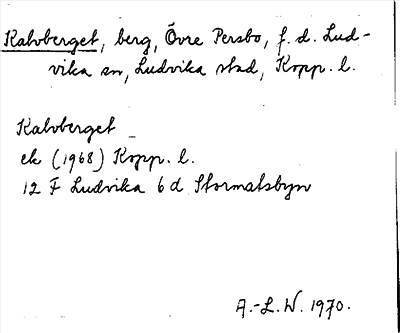 Kalvberget, berg, Övre Persbo, f. d. Lud-
vika sn, Ludvika stad, Kopp. l.
Kalvberget
ek (1968) Kopp. l.
12 F Ludvika 6 d Stormatsbyn
A.-L. W. 1970.